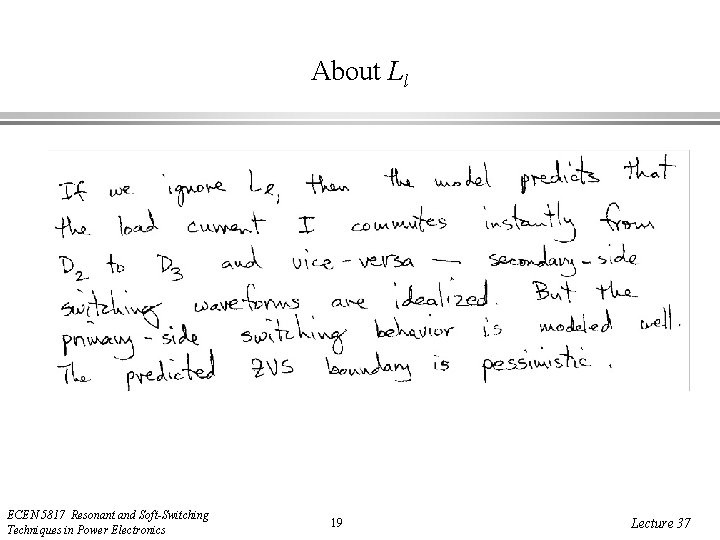 About Ll
If we ignore Le, then the model predicts that
the load current I commutes instantly from
D2 to D3 and vice-versa — secondary-side
switching waveforms are idealized. But the
primary-side switching behavior is modeled well.
The predicted ZVS boundary is pessimistic.
ECEN 5817 Resonant and Soft-Switching
Techniques in Power Electronics
19
Lecture 37